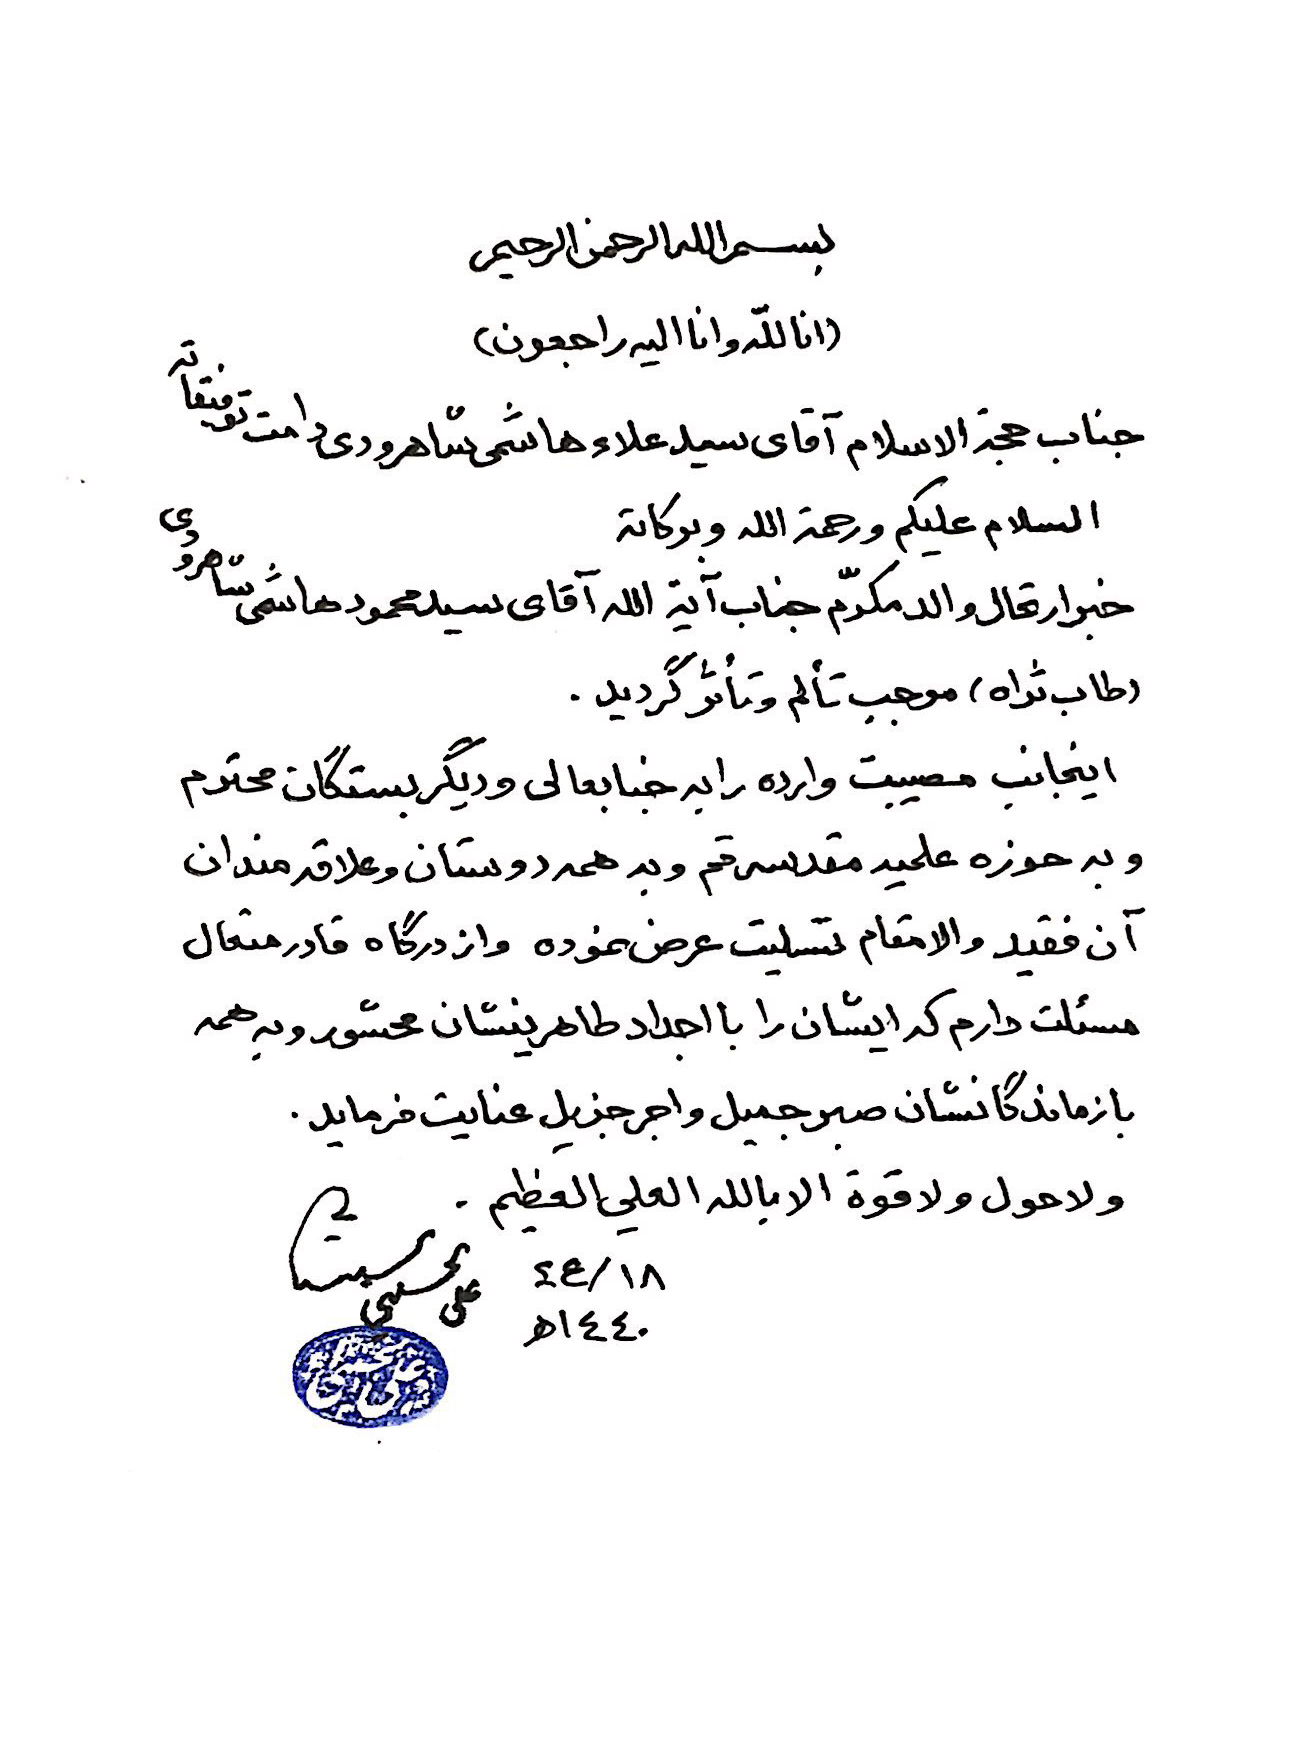 بسم الله الرحمن الرحيم
(انا لله وانا اليه راجعون)
جناب حجة الاسلام آقای سید علاء هاشمی شاهرودی دامت توفیقاته
السلام علیکم ورحمة الله وبركاته
خبر ارتحال والد مکرّم جناب آیة الله آقای سید محمود هاشمی شاهرودی
(طاب ثراه) موجب تألم وتأثر گردید .
اینجانب مصیبت وارده را به جنابعالی و دیگر بستگان محترم
و به حوزه علمیه مقدسه قم و به همه دوستان و علاقه مندان
آن فقید والامقام تسلیت عرض نموده و از درگاه قادر متعال
مسئلت دارم که ایشان را با اجداد طاهرینشان محشور و به همه
بازماندگانشان صبر جمیل و اجر جزیل عنایت فرماید .
ولا حول ولا قوة الا بالله العلي العظيم .
١٨/ع٢
١٤٤٠ه
علی الحسینی السیستانی